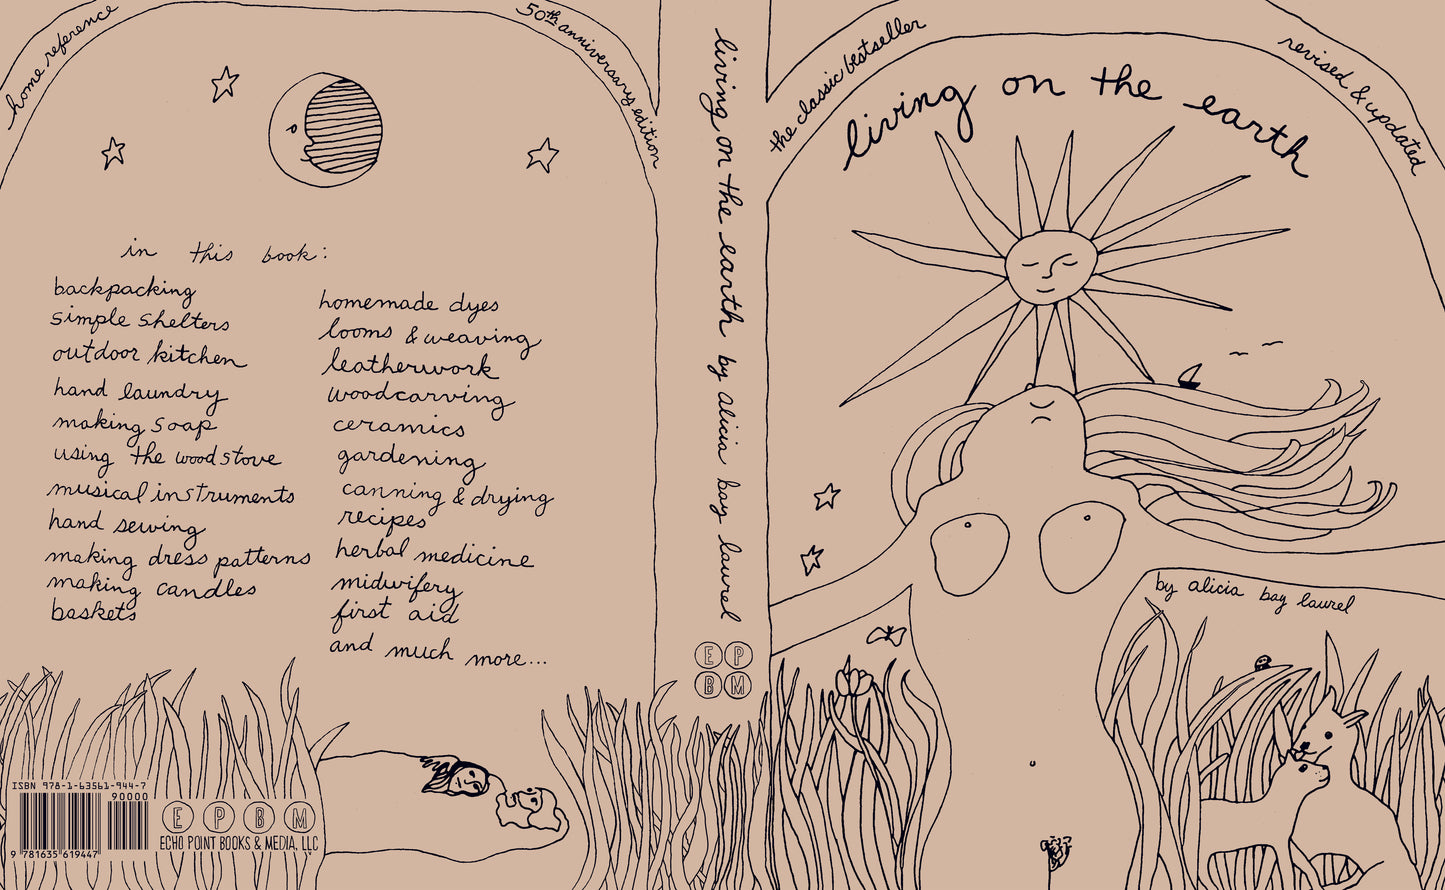 home reference
50th anniversary edition
in this book:
backpacking
simple shelters
outdoor kitchen
hand laundry
making soap
using the woodstove
musical instruments
hand sewing
making dress patterns
making candles
baskets
homemade dyes
looms & weaving
leatherwork
woodcarving
ceramics
gardening
canning & drying
recipes
herbal medicine
midwifery
first aid
and much more...
ISBN 978-1-63561-944-7
90000
9 781635 619447
E P B M
ECHO POINT BOOKS & MEDIA, LLC
living on the earth by alicia bay laurel
E P
B M
the classic bestseller
revised & updated
living on the earth
by alicia bay laurel